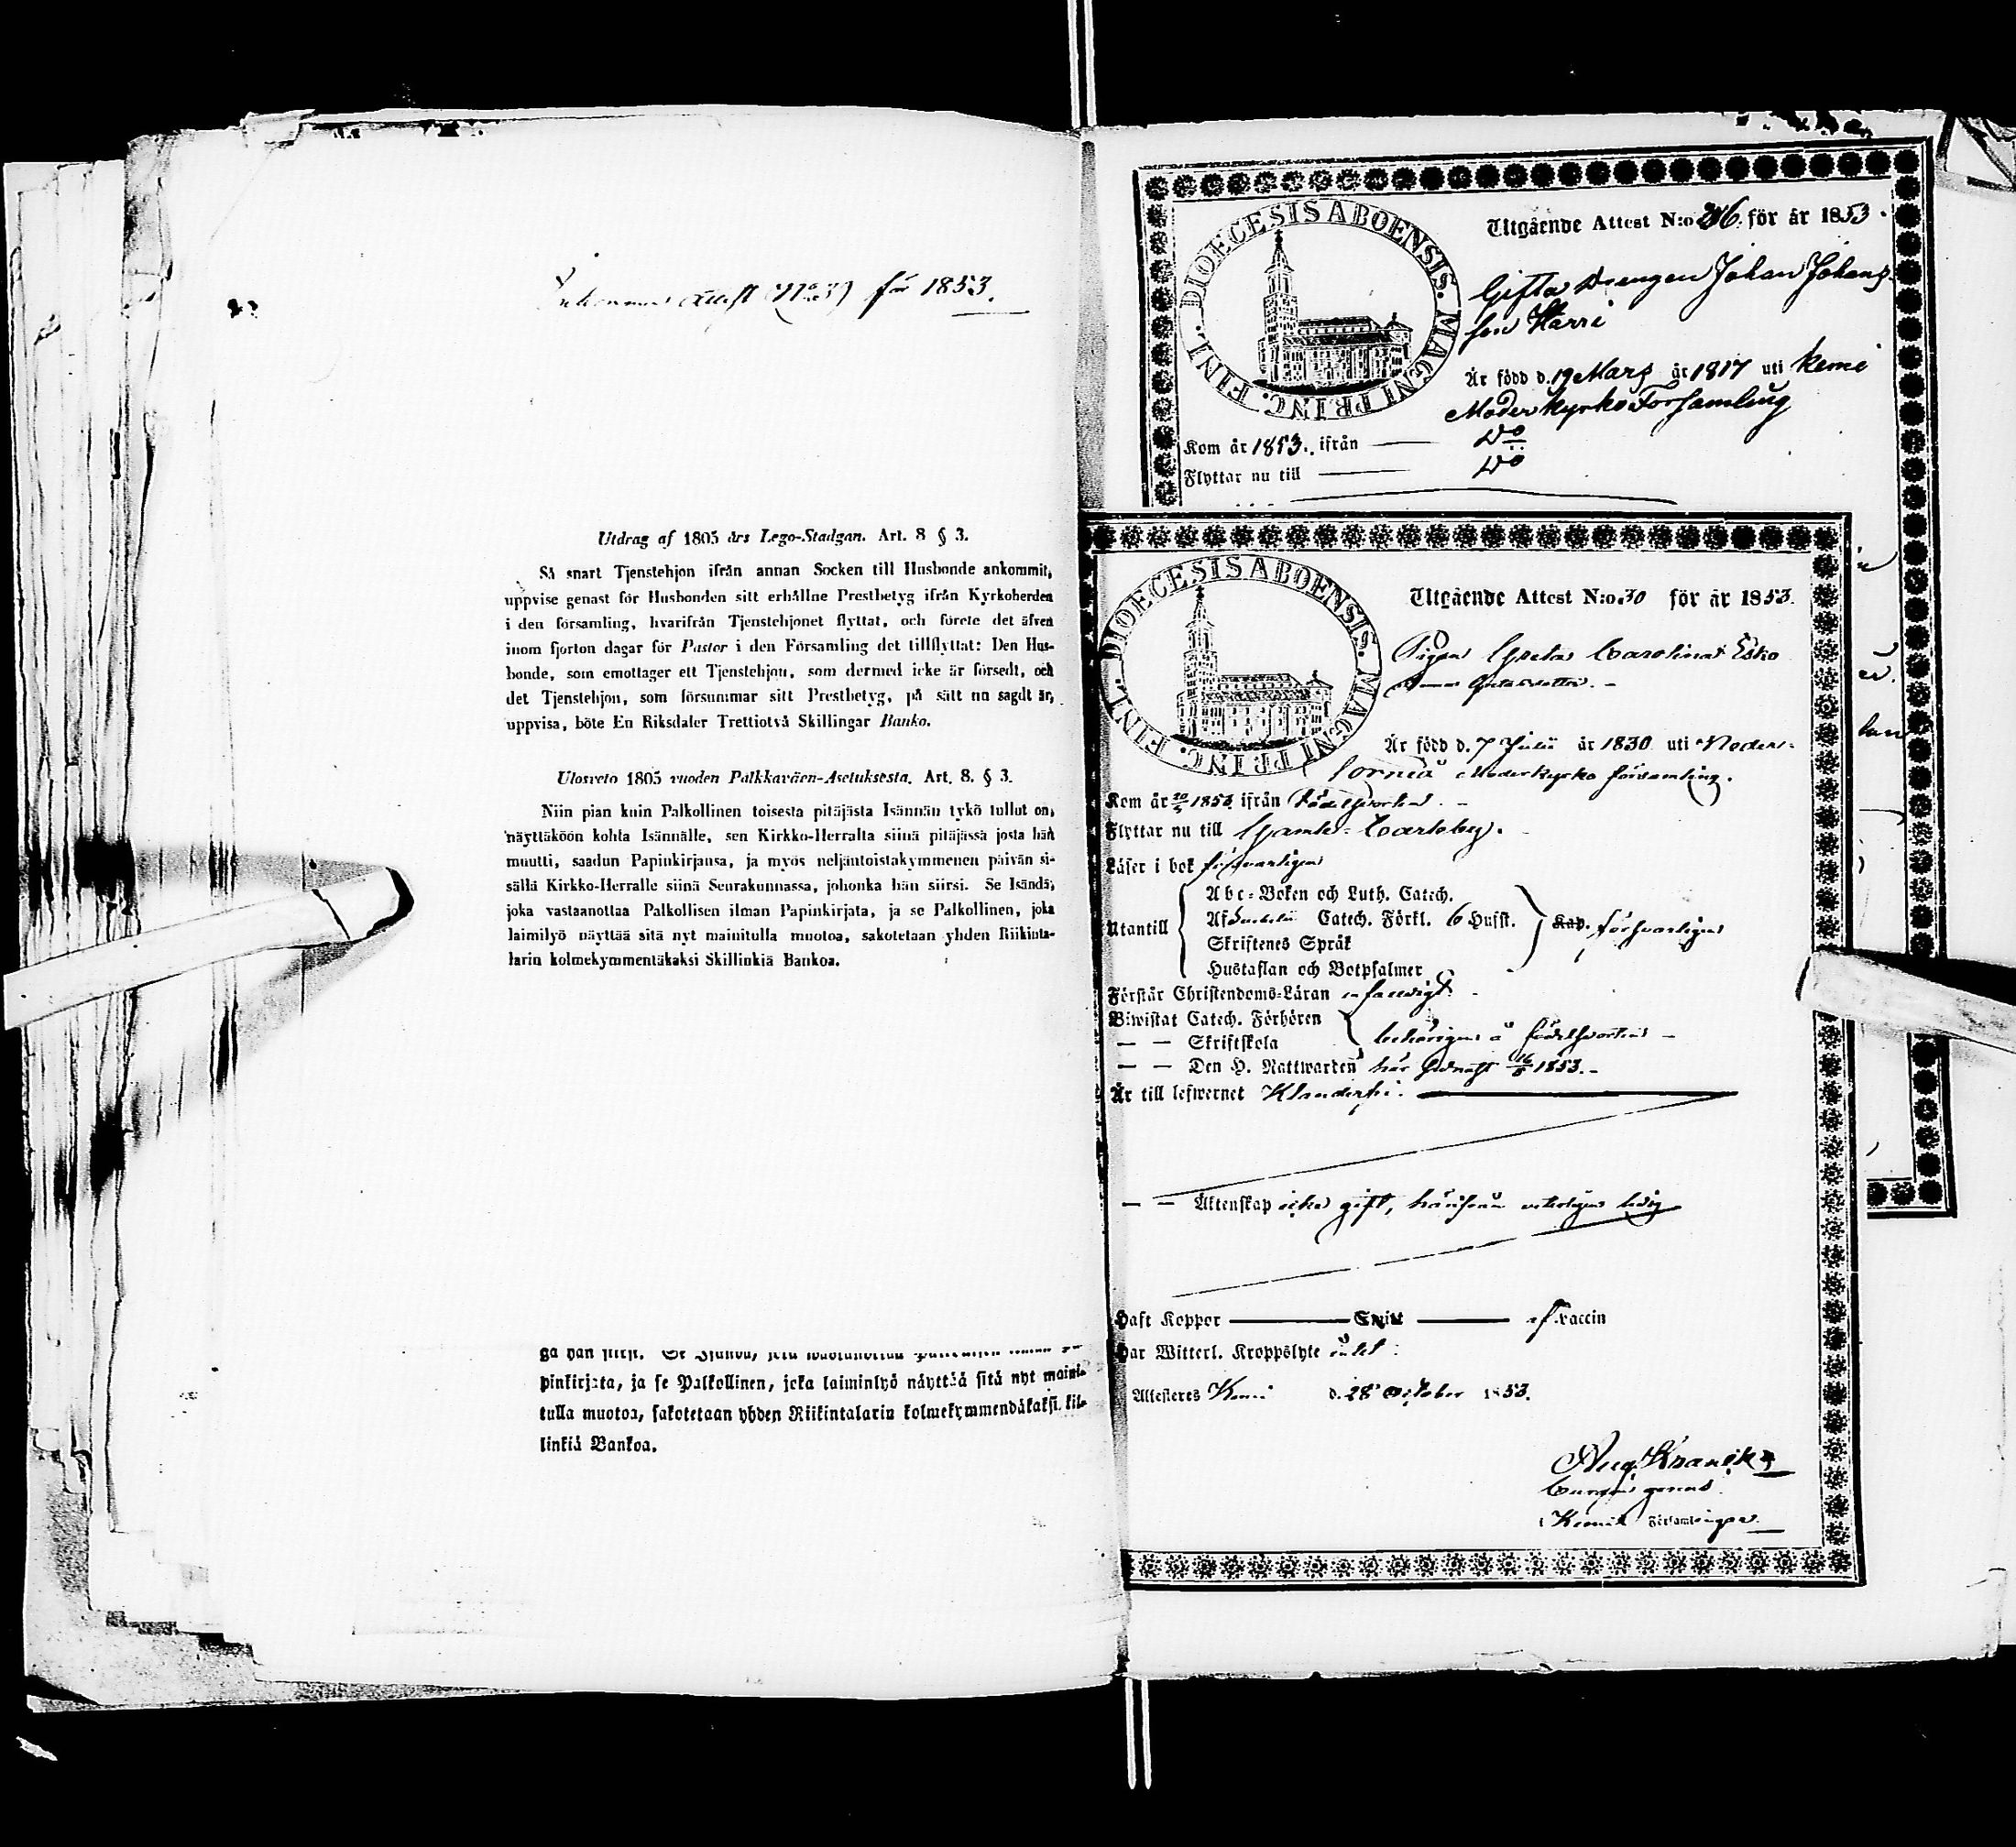 Attest (No 31) för 1853.
Utdrag af 1805 års Lego-Stadgan. Art. 8 § 3.
Så snart Tjenstehjon ifrån annan Socken till Husbonde ankommit,
uppvise genast för Husbonden sitt erhållne Prestbetyg ifrån Kyrkoherden
i den församling, hvarifrån Tjenstehjonet flyttat, och förete det äfven
inom fjorton dagar för Pastor i den Församling det tillflyttat: Den Hus-
bonde, som emottager ett Tjenstehjon, som dermed icke är försedt, och
det Tjenstehjon, som försummar sitt Prestbetyg, på sätt nu sagdt är,
uppvisa, böte En Riksdaler Trettiotvå Skillingar Banko.
Ulosveto 1805 vuoden Palkkaväen-Asetuksesta. Art. 8. § 3.
Niin pian kuin Palkollinen toisesta pitäjästä Isännän tykö tullut on,
näyttäköön kohta Isännälle, sen Kirkko-Herralta siinä pitäjässä josta hän
muutti, saadun Papinkirjansa, ja myös neljäntoistakymmenen päivän si-
sällä Kirkko-Herralle siinä Seurakunnassa, johonka hän siirsi. Se Isändä,
joka vastaanottaa Palkollisen ilman Papinkirjata, ja se Palkollinen, joka
laimilyö näyttää sitä nyt mainitulla muotoa, sakotetaan yhden Riikinta-
larin kolmekymmentäkaksi Skillinkiä Bankoa.
pinkirjata, ja se Palkollinen, joka laiminlyö näyttää sitä nyt maini-
tulla muotoa, sakotetaan yhden Riikintalarin kolmekymmendäkaksi kil-
linkiä Bankoa.
DIOECESIS ABOENSIS. MAGNI PRINC. FINL.
Utgående Attest N:o 216. för år 1853.
Gifta Drengen Johan Johans-
son Harri
Är född d. 19 Mars år 1817 uti Kemi
Moderkyrko Församling
Kom år 1853. ifrån Do
Flyttar nu till Do
DIOECESIS ABOENSIS. MAGNI PRINC. FINL.
Utgående Attest N:o 30 för år 1853.
Pigan Greta Carolina Esko
Är född d. 7 Julii år 1830 uti Neder-
Torneå Moderkyrko församling.
Kom år 1853 ifrån födelseorten.
Flyttar nu till Gamle-Carleby.
Läser i bok försvarligen
Utantill
Abc-Boken och Luth. Catech.
Af Catech. Förkl. 6 Hufst.
Skriftenes Språk
Hustaflan och Botpsalmer
Kap. försvarligen
Förstår Christendoms-Läran enfaldigt.
Biwistat Catech. Förhören
— — Skriftskola
behörigen å födelseorten —
— — Den H. Nattwarden här sednast 16/5 1853.
Är till lefwernet Klanderfri.
— — Äktenskap icke gift, härifrån veterligen ledig
Haft Koppor Smitt af vaccin
Har Witterl. Kroppslyte intet
Attesteres Kemi d. 28 October 1853.
Aug. Kranck
i Kemi Församlingar